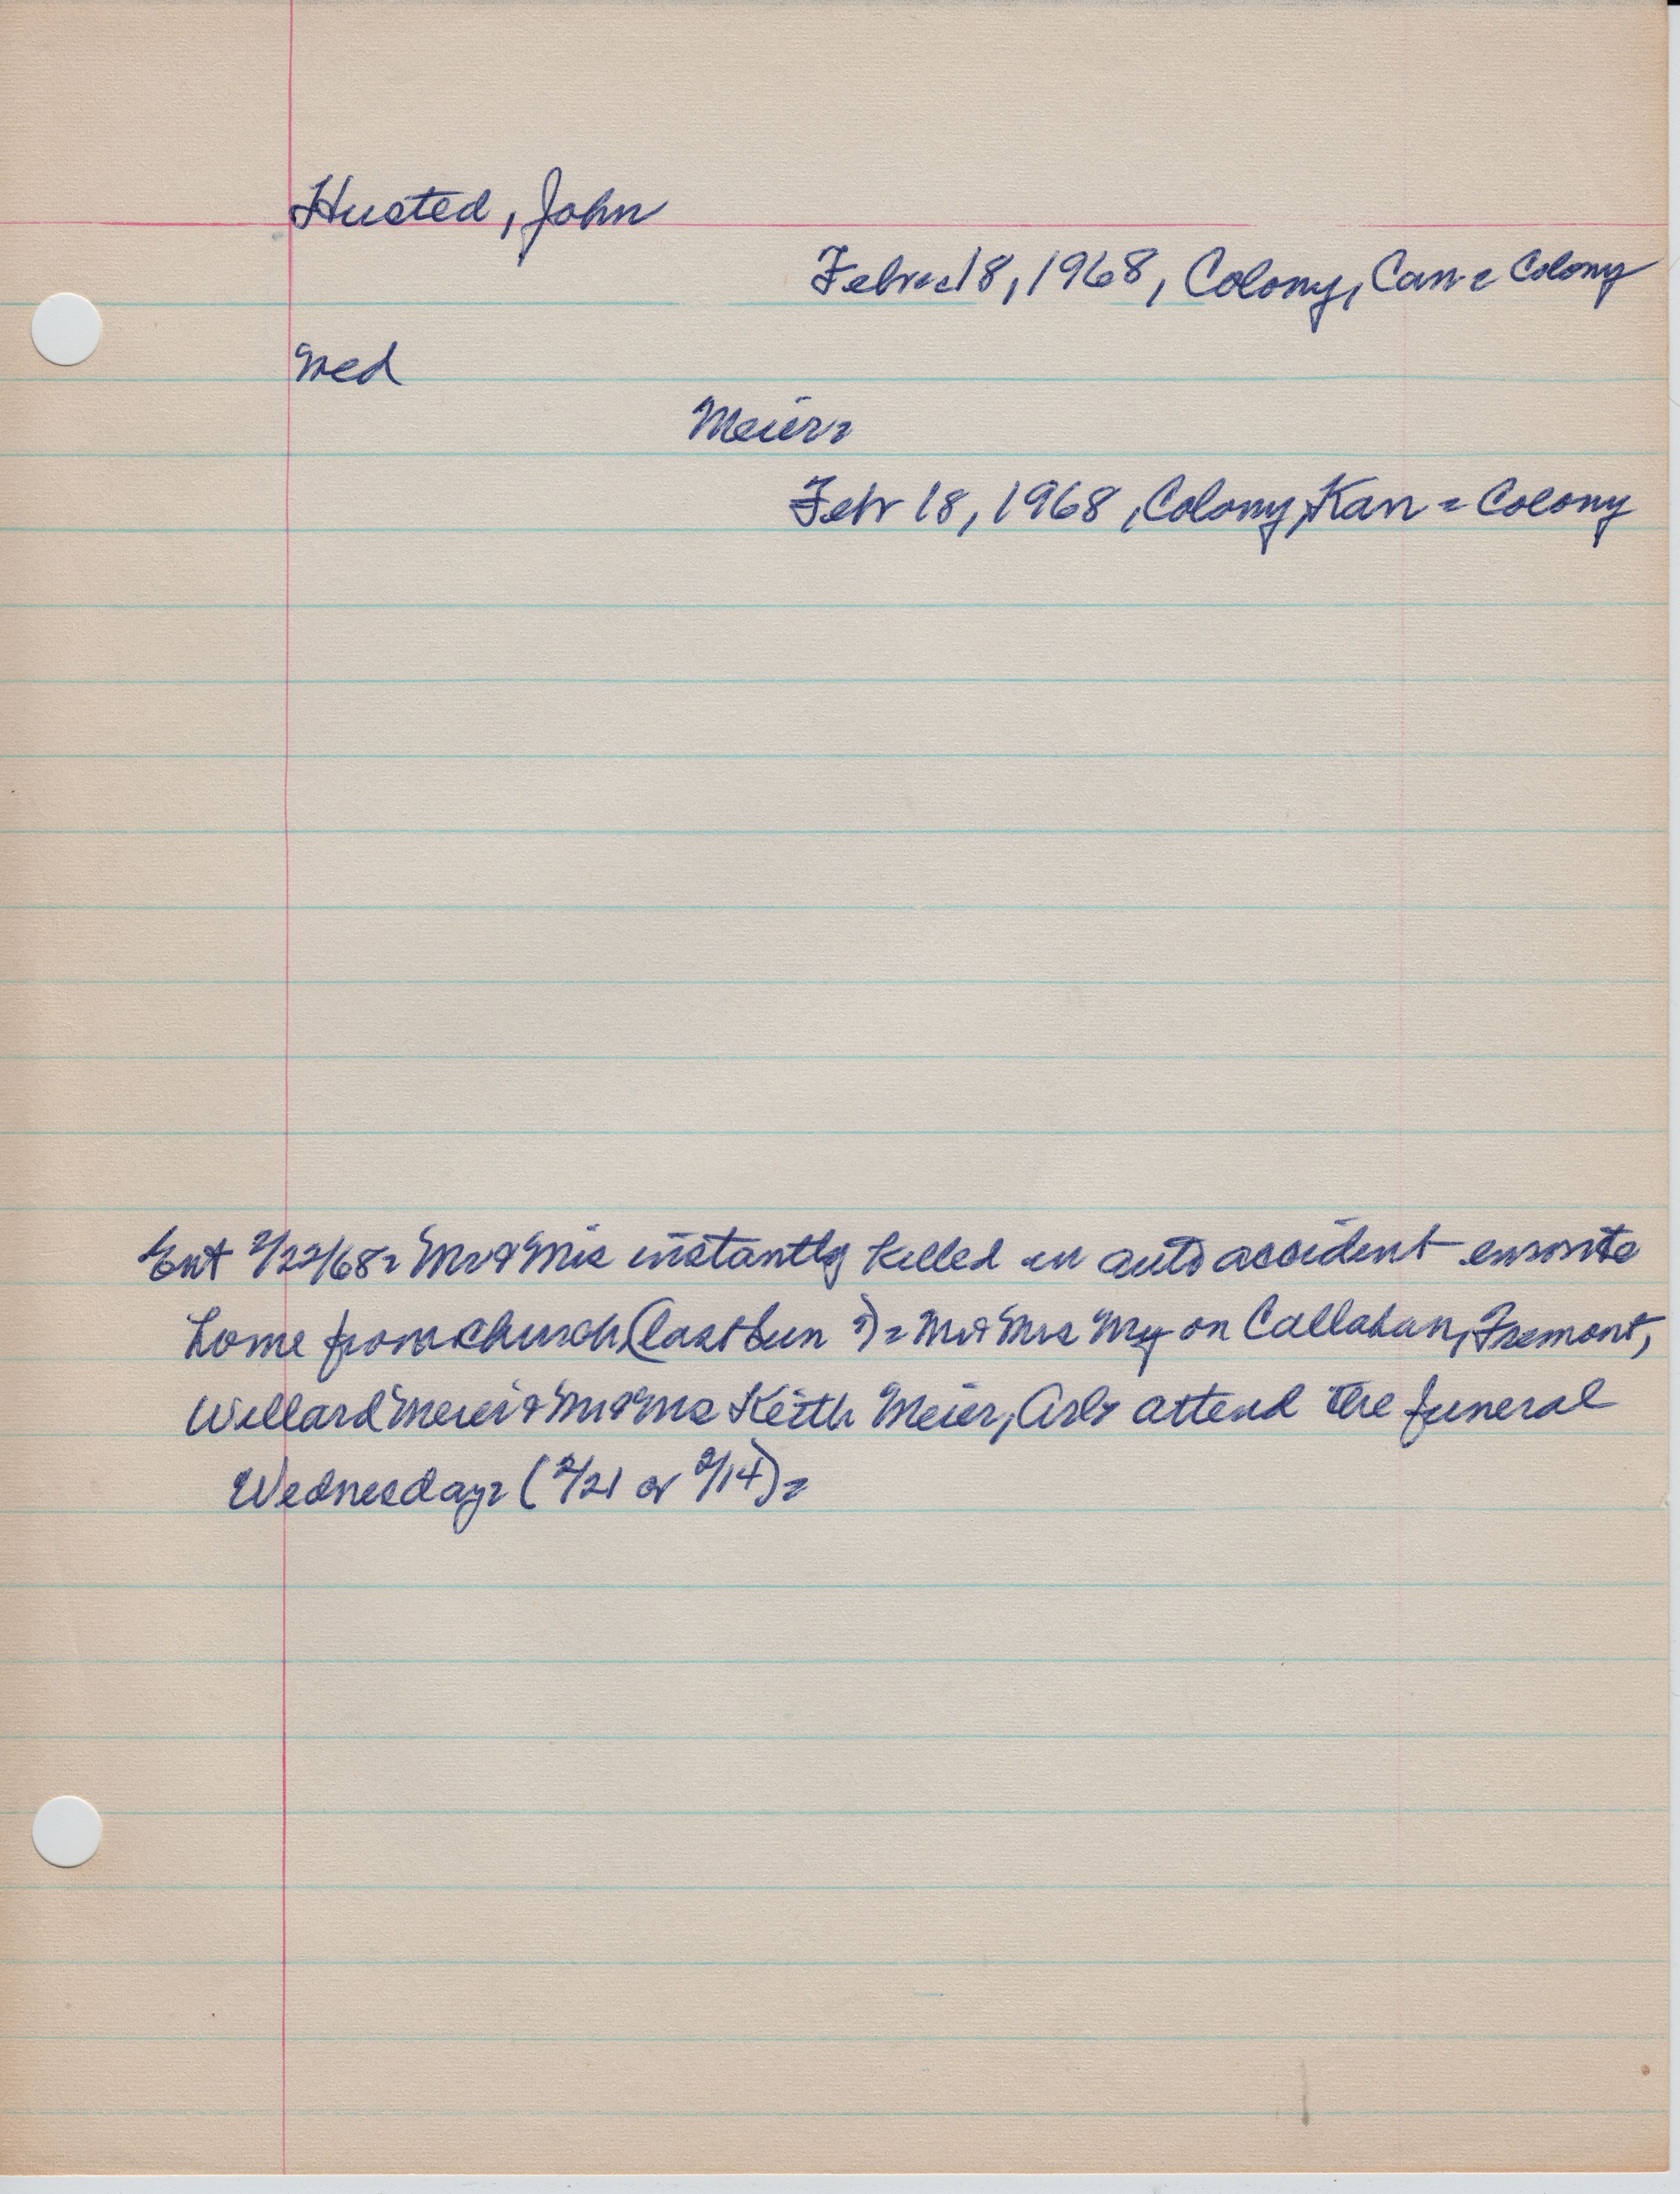 Husted, John
Febr 18, 1968, Colony, Can = Colony
Med
Meier=
Febr 18, 1968, Colony, Kan = Colony
Ent 2/22/68= Mr & Mrs instantly killed in auto accident enroute
home from church (last Sun ?) = Mr & Mrs on Callahan, Fremont,
Willard Meier & Mr & Mrs Keith Meier, Arl= attend the funeral
Wednesday= (2/21 or 2/14)=